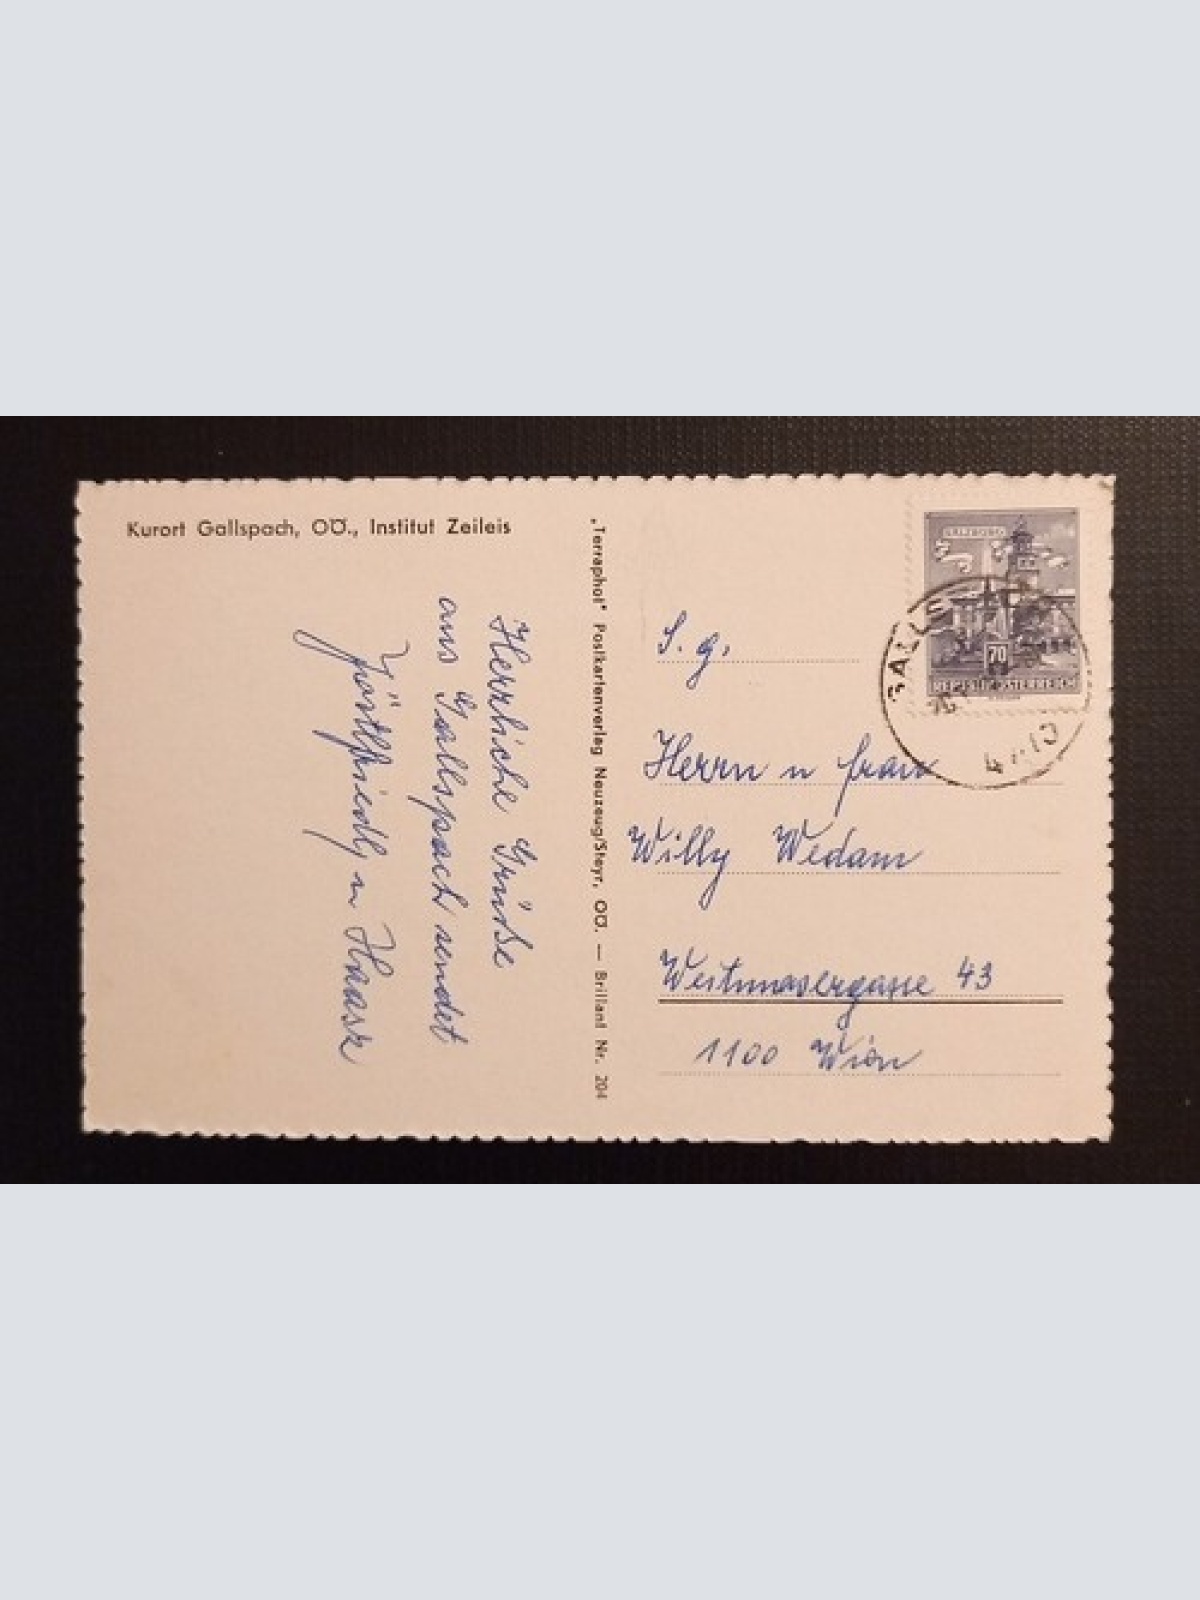 Kurort Gallspach, OÖ., Institut Zeileis
Herzliche Grüße
aus Gallspach sendet
u Haask
„Terraphot" Postkartenverlag Neuzeug/Steyr, OÖ. — Brillant Nr. 204
SALZBURG
70
REPUBLIK ÖSTERREICH
GALLS
S. g.
Herrn u Frau
Willy Wedam
43
1100 Wien